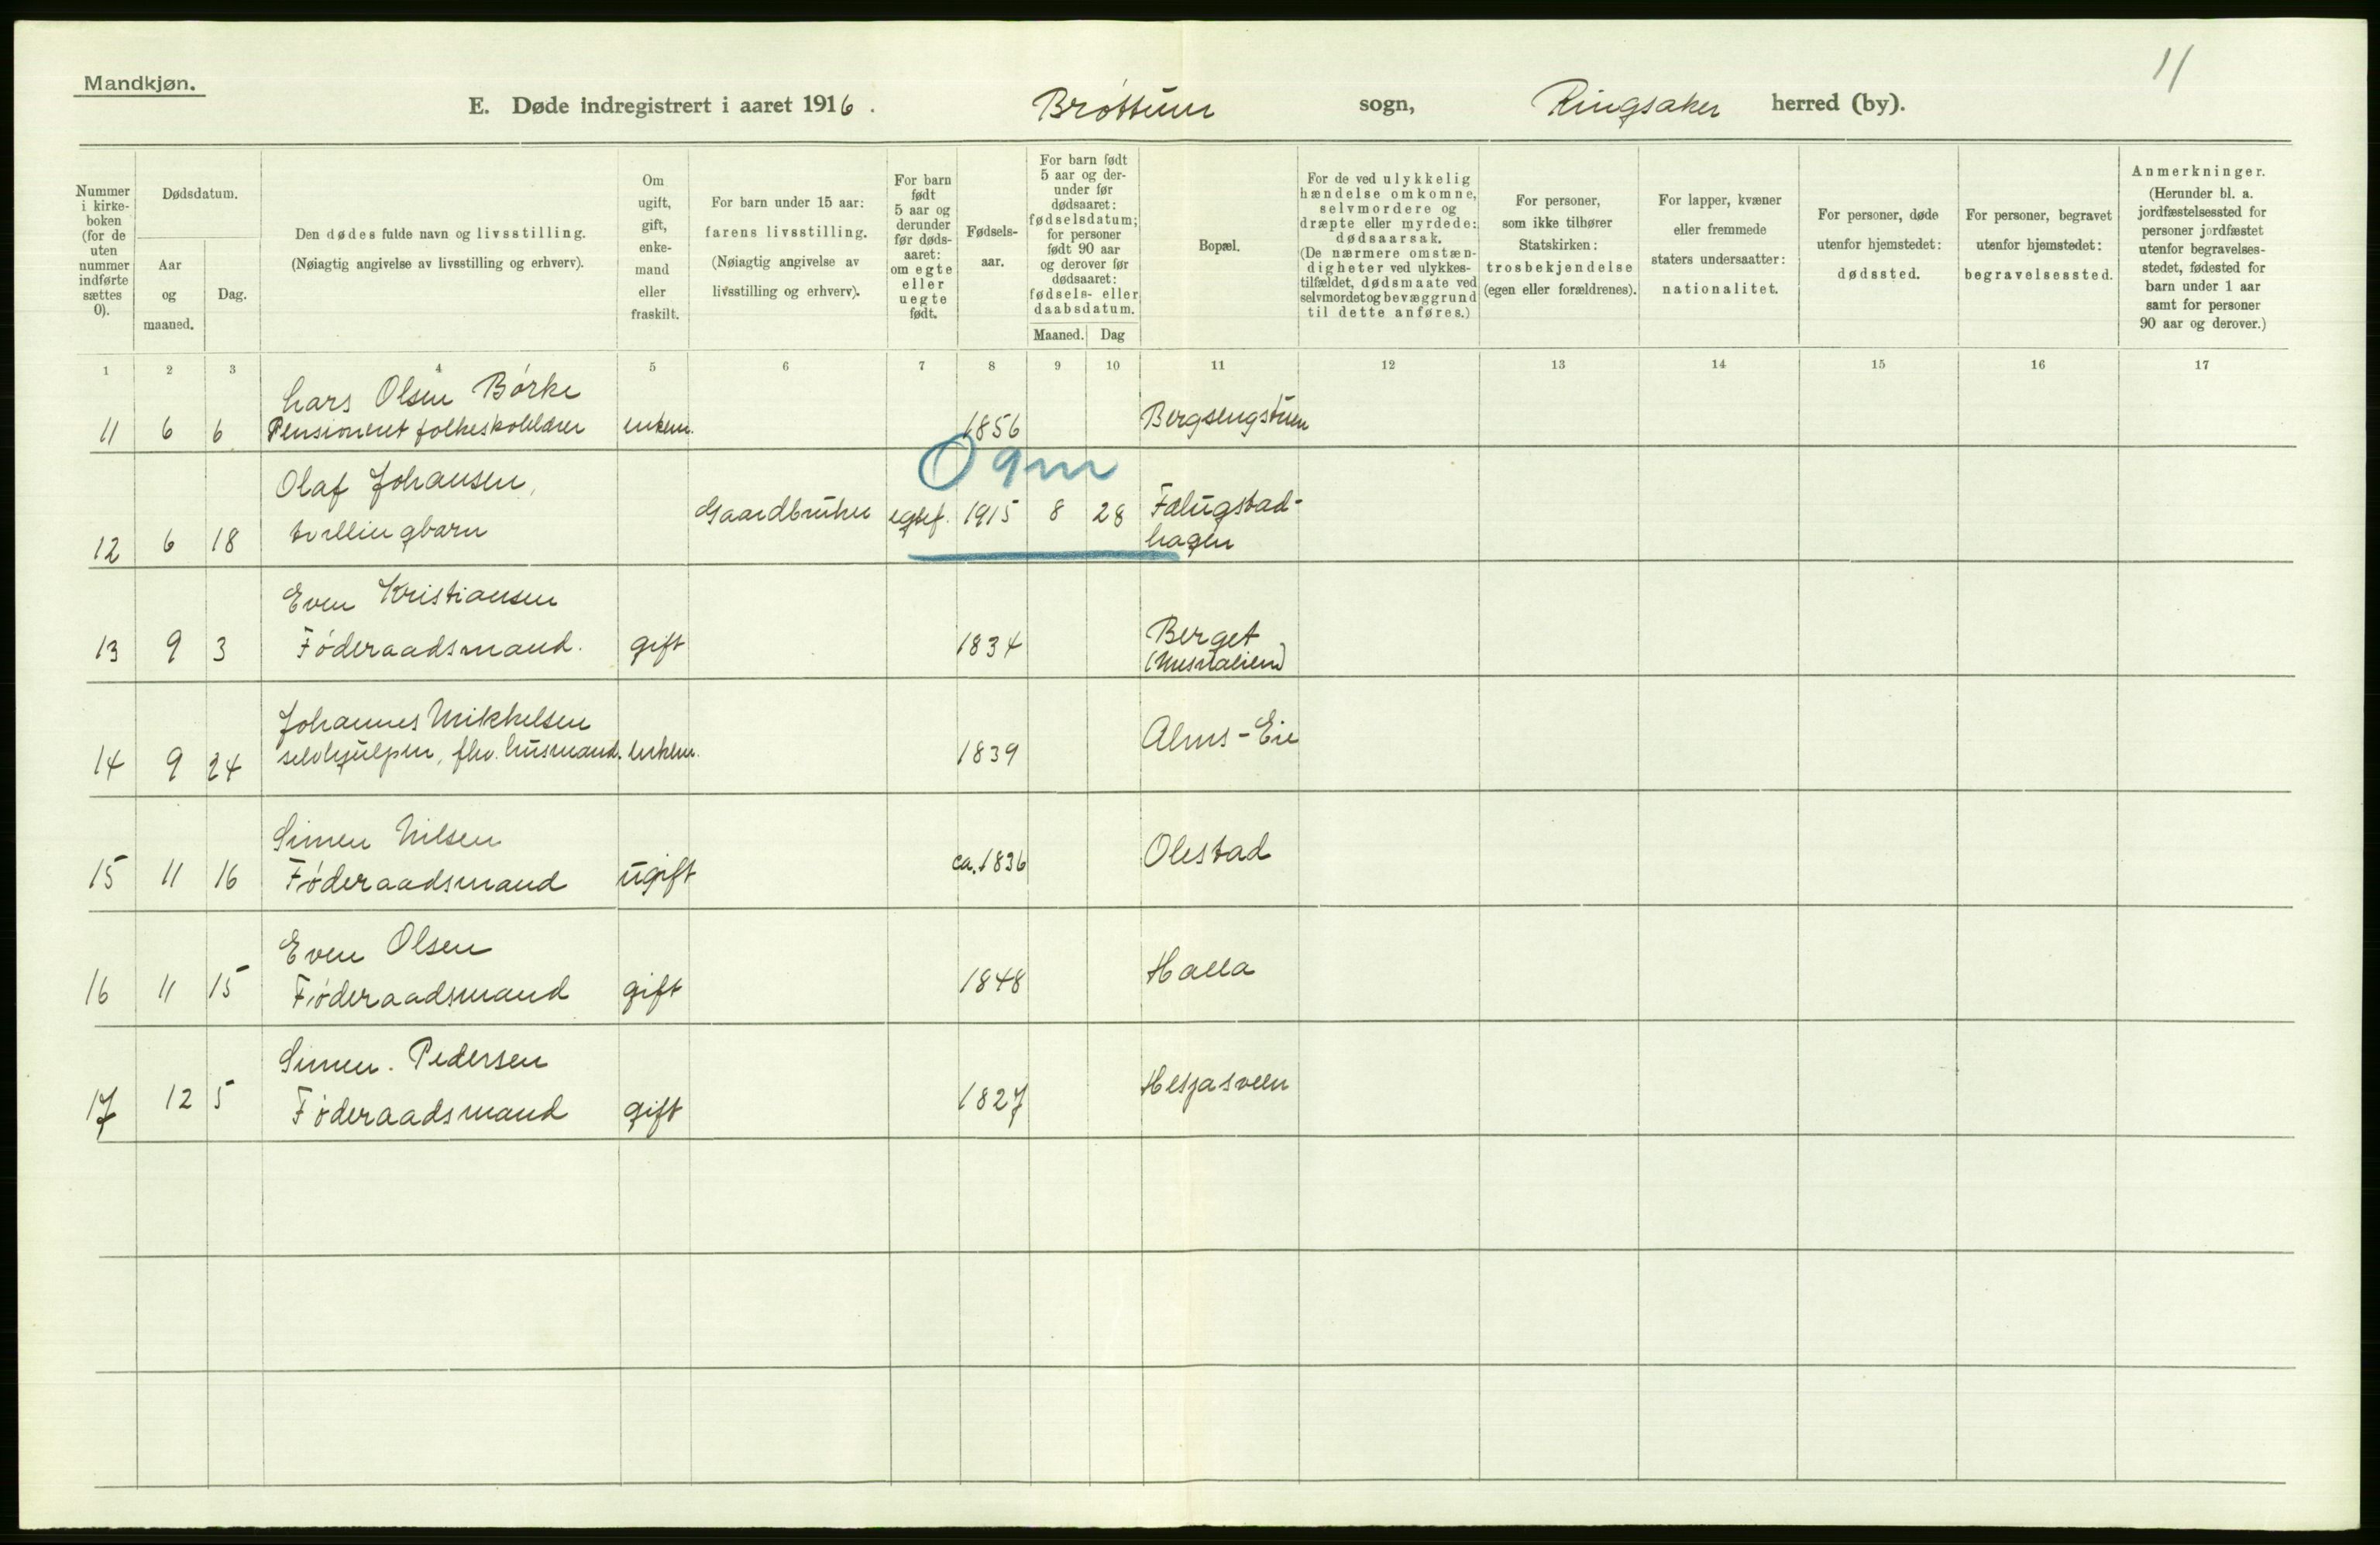 11
Mandkjøn.
E. Døde indregistrert i aaret 1916. Brøttum sogn, Ringsaker herred (by).
Nummer
i kirke-
boken
(for de
uten
nummer
indførte
sættes
0).
Dødsdatum.
Aar
og
maaned.
Dag.
Den dødes fulde navn og livsstilling.
(Nøiagtig angivelse av livsstilling og erhverv).
Om
ugift,
gift,
enke-
mand
eller
fraskilt.
For barn under 15 aar:
farens livsstilling.
(Nøiagtig angivelse av
livsstilling og erhverv).
For barn
født
5 aar og
derunder
før døds-
aaret:
om egte
eller
uegte
født.
Fødsels-
aar.
For barn født
5 aar og der-
under før
dødsaaret:
fødselsdatum;
for personer
født 90 aar
og derover før
dødsaaret:
fødsels- eller
daabsdatum.
Maaned. Dag
Bopæl.
For de ved ulykkelig
hændelse omkomne,
selvmordere og
dræpte eller myrdede:
dødsaarsak.
(De nærmere omstæn-
digheter ved ulykkes-
tilfældet, dødsmaate ved
selvmordet og bevæggrund
til dette anføres.)
For personer,
som ikke tilhører
Statskirken:
trosbekjendelse
(egen eller forældrenes).
For lapper, kvæner
eller fremmede
staters undersaatter:
nationalitet.
For personer, døde
utenfor hjemstedet:
dødssted.
For personer, begravet
utenfor hjemstedet:
begravelsessted.
Anmerkninger.
(Herunder bl. a.
jordfæstelsessted for
personer jordfæstet
utenfor begravelses-
stedet, fødested for
barn under 1 aar
samt for personer
90 aar og derover.)
1 2 3 4 5 6 7 8 9 10 11 12 13 14 15 16 17
Lars Olsen Børke
11 6 6 Pensioneret folkeskolelærer enkem. 1856 Bergsengstuen
0 9 m
Olaf Johansen,
Gaardbruker egtef. 1915 8 28 Falugstad-
12 6 18 tvillingbarn hagen
Even Kristiansen
13 9 3 Føderaadsmand. gift 1834 Berget
(Mesnalien)
Johannes Mikkelsen
14 9 24 selvhjulpen, fhv. husmand. enkem. 1839 Alms-Eie
Simen Nilsen
15 11 16 Føderaadsmand ugift ca. 1836 Olestad
Even Olsen
16 11 15 Føderaadsmand gift 1848 Halla
Simen. Pedersen
17 12 5 Føderaadsmand gift 1827 Hesjasveen